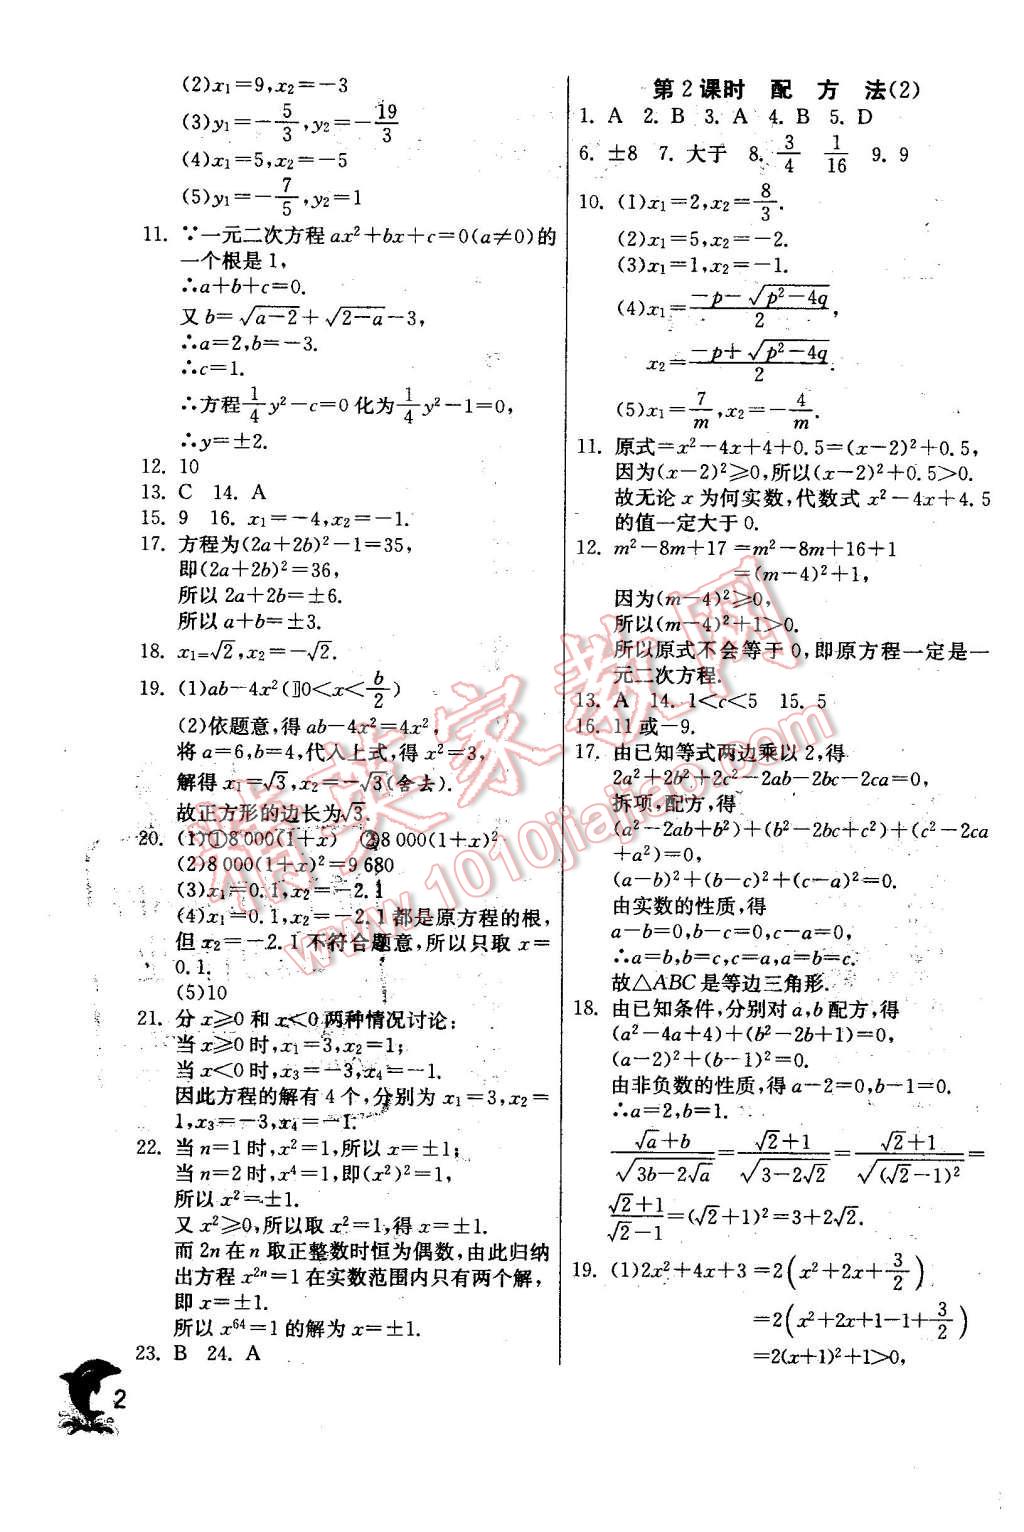 (2)x₁=9,x₂=-3
(3)y₁=-5/3,y₂=-19/3
(4)x₁=5,x₂=-5
(5)y₁=-7/5,y₂=1
11. ∵一元二次方程 ax²+bx+c=0(a≠0)的
一个根是 1,
∴a+b+c=0.
又 b=√(a-2)+√(2-a)-3,
∴a=2,b=-3.
∴c=1.
∴方程 1/4 y²-c=0 化为 1/4 y²-1=0,
∴y=±2.
12. 10
13. C 14. A
15. 9 16. x₁=-4,x₂=-1.
17. 方程为(2a+2b)²-1=35,
即(2a+2b)²=36,
所以 2a+2b=±6.
所以 a+b=±3.
18. x₁=√2,x₂=-√2.
19. (1)ab-4x²(0<x<b/2)
(2)依题意,得 ab-4x²=4x²,
将 a=6,b=4,代入上式,得 x²=3,
解得 x₁=√3,x₂=-√3(舍去).
故正方形的边长为√3.
20. (1)①8 000(1+x) ②8 000(1+x)²
(2)8 000(1+x)²=9 680
(3)x₁=0.1,x₂=-2.1
(4)x₁=0.1,x₂=-2.1 都是原方程的根,
但 x₂=-2.1 不符合题意,所以只取 x=
0.1.
(5)10
21. 分 x≥0 和 x<0 两种情况讨论:
当 x≥0 时,x₁=3,x₂=1;
当 x<0 时,x₃=-3,x₄=-1.
因此方程的解有 4 个,分别为 x₁=3,x₂=
1,x₃=-3,x₄=-1.
22. 当 n=1 时,x²=1,所以 x=±1;
当 n=2 时,x⁴=1,即(x²)²=1,
所以 x²=±1.
又 x²≥0,所以取 x²=1,得 x=±1.
而 2n 在 n 取正整数时恒为偶数,由此归纳
出方程 x²ⁿ=1 在实数范围内只有两个解,
即 x=±1.
所以 x⁶⁴=1 的解为 x=±1.
23. B 24. A
2
第 2 课时 配 方 法(2)
1. A 2. B 3. A 4. B 5. D
6. ±8 7. 大于 8. 3/4 1/16 9. 9
10. (1)x₁=2,x₂=8/3.
(2)x₁=5,x₂=-2.
(3)x₁=1,x₂=-1.
(4)x₁=(-p-√(p²-4q))/2,
x₂=(-p+√(p²-4q))/2.
(5)x₁=7/m,x₂=-4/m.
11. 原式=x²-4x+4+0.5=(x-2)²+0.5,
因为(x-2)²≥0,所以(x-2)²+0.5>0.
故无论 x 为何实数,代数式 x²-4x+4.5
的值一定大于 0.
12. m²-8m+17 =m²-8m+16+1
=(m-4)²+1,
因为(m-4)²≥0,
所以(m-4)²+1>0.
所以原式不会等于 0,即原方程一定是一
元二次方程.
13. A 14. 1<c<5 15. 5
16. 11或-9.
17. 由已知等式两边乘以 2,得
2a²+2b²+2c²-2ab-2bc-2ca=0,
拆项,配方,得
(a²-2ab+b²)+(b²-2bc+c²)+(c²-2ca
+a²)=0.
(a-b)²+(b-c)²+(c-a)²=0.
由实数的性质,得
a-b=0,b-c=0,c-a=0,
∴a=b,b=c,c=a,a=b=c.
故△ABC 是等边三角形.
18. 由已知条件,分别对 a,b 配方,得
(a²-4a+4)+(b²-2b+1)=0.
(a-2)²+(b-1)²=0.
由非负数的性质,得 a-2=0,b-1=0.
∴a=2,b=1.
(√a+b)/√(3b-2√a)=(√2+1)/√(3-2√2)=(√2+1)/√((√2-1)²)=
(√2+1)/(√2-1)=(√2+1)²=3+2√2.
19. (1)2x²+4x+3=2(x²+2x+3/2)
=2(x²+2x+1-1+3/2)
=2(x+1)²+1>0,
精英家教网
www.1010jiajiao.com